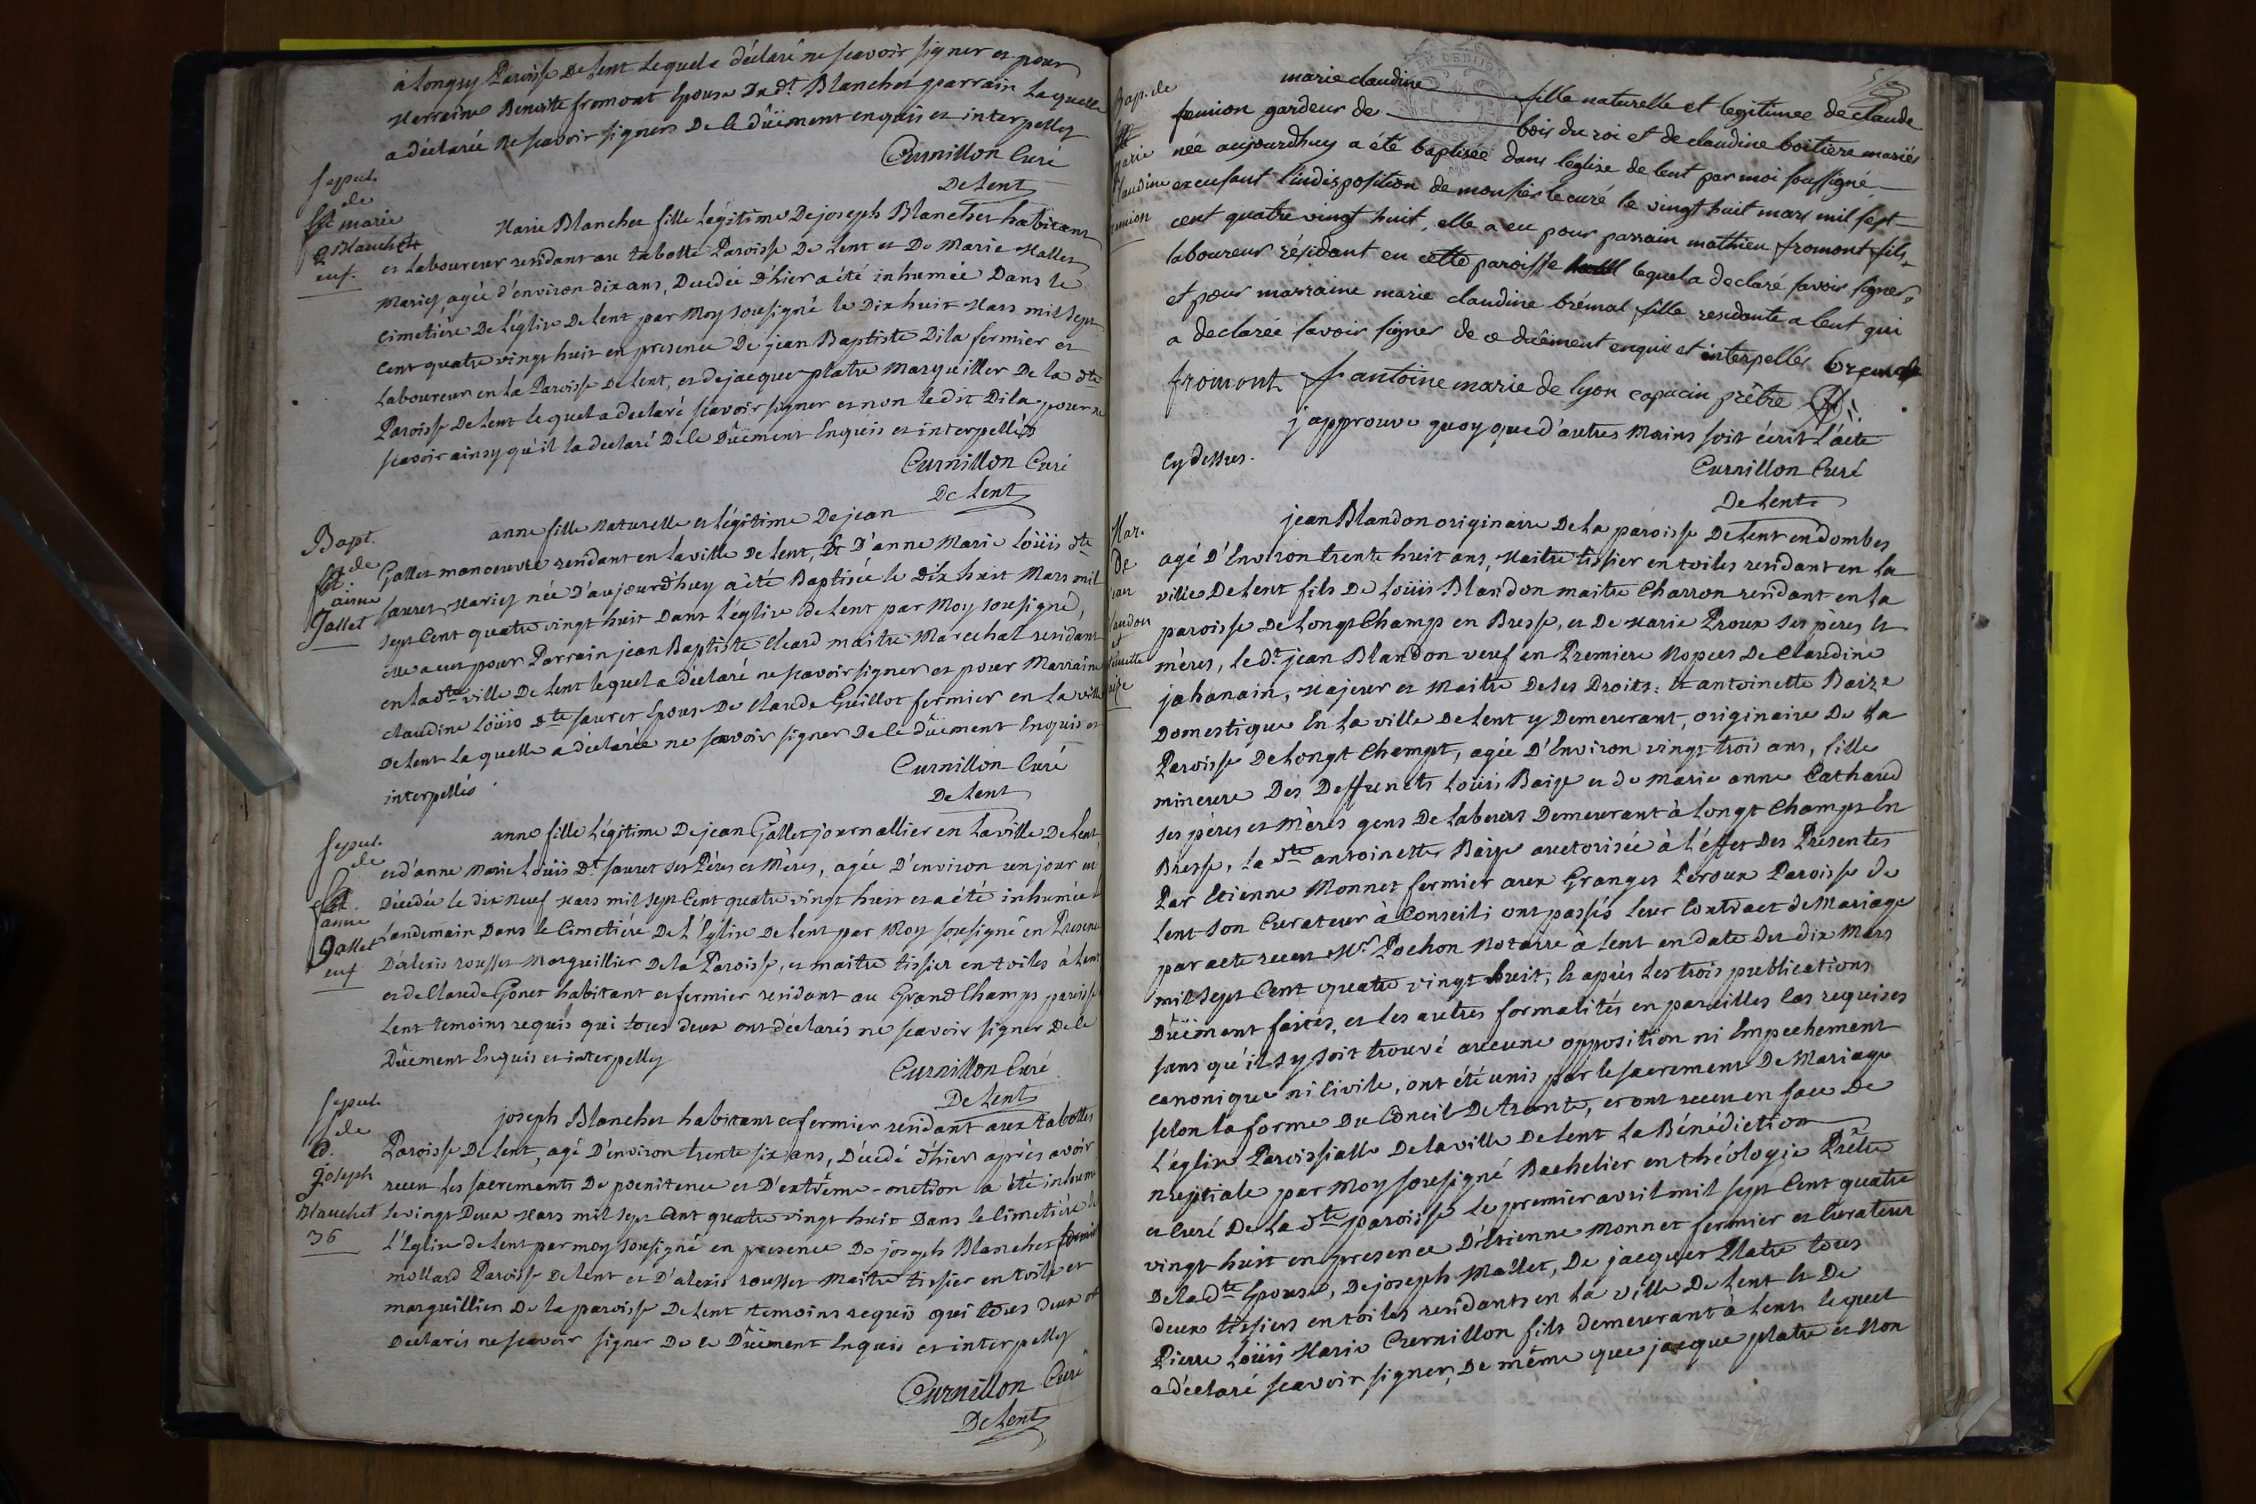 à Longry Paroisse De Lent Lequel a déclaré ne scavoir signer et pour
Marraine Benoite fromont Epouse Du dt. Blanchet parrain Laquelle
a déclaréé ne scavoir signer De Ce Dûëment enquis et interpellez
Curnillon Curé
De Lent
Sepul.
de
marie
Blanchet
enf.
Marie Blanchet fille Légitime De joseph Blanchet habitant
et Laboureur residant au tabotte Paroisse De Lent et De Marie Mallet
Mariez, agée d'environ dix ans, Décédée d'hier a été inhumée Dans le
Cimetière De L'église De Lent par Moy sousigné le Dix huit Mars mil sept
Cent quatre vingt huit en presence De jean Baptiste Dila fermier et
Laboureur en La Paroisse De Lent, et De jacque platre Marguiller De la dte
Paroisse De Lent lequel a declaré scavoir signer et non le dit Dila pour ne
scavoir ainsy qu'il la declaré De Ce Dûëment Enquis et interpellés
Curnillon Curé
De Lent
Bapt.
de
anne
Gallet
anne fille Naturelle et Légitime De jean
Gallet manoeuvre residant en la ville De Lent, Et D'anne Marie Loüis dte
sauret Mariez née D'aujourd'huy a été Baptisée le Dix huit Mars mil
sept Cent quatre vingt huit Dans L'église de Lent par Moy sousigné,
elle a eut pour Parrain jean Baptiste Cleard maitre Marechal residant
en la dte ville De Lent lequel a déclaré ne scavoir signer et pour Marraine
Claudine Loüis dte sauret Epouse De Claude Guillot fermier en La ville
De Lent Laquelle a déclarée ne scavoir signer De Ce dûëment Enquis et
interpellés
Curnillon Curé
De Lent
Sepul.
de
anne
Gallet
enf.
anne fille Légitime De jean Gallet journallier en La ville De Lent
et d'anne Marie Loüis Dt sauret ses Péres et Méres, agée D'environ un jour
Décédée le dix Neuf Mars mil sept Cent quatre vingt huit et a été inhumée
Landemain Dans le Cimetiére De L'Eglise De Lent par Moy sousigné en Presence
D'alexis rousset Marguillier De la Paroisse, et maitre tissier en toiles à Lent
et de Claude Gonet habitant et fermier residant au Grand Champs paroisse
Lent temoins requis qui tous deux ont déclarés ne scavoir signer De Ce
Dûëment Enquis et interpellez
Curnillon Curé
De Lent
Sepul.
de
Joseph
Blanchet
36
joseph Blanchet habitant et fermier residant aux tabottes
Paroisse De Lent, agé D'environ trente six ans, Décédé d'hier aprés avoir
recu Les sacrements De poenitence et D'extrême-onction a été inhumé
Le vingt Deux Mars mil sept Cent quatre vingt huit Dans le Cimetiére de
L'Eglise de Lent par moy sousigné en presence De joseph Blanchet fermier
mollard Paroisse De Lent et D'alexis rousset Maitre tissier en toile et
marguillier De la paroisse De Lent temoins requis qui tous deux ont
Declarés ne scavoir signer De Ce Dûëment Enquis et interpellez
Curnillon Curé
De Lent
Bap. de
marie
Claudine
marie claudine fille naturelle et legitimee de claude
feunion gardeur de bois du roi et de claudine boitiere mariés
née aujourdhuy a été baptisée dans leglise de lent par moi soussigné
excusant l'indisposition de monsier le curé le vingt huit mars mil sept
cent quatre vingt huit, elle a eu pour parrain mathieu fromont fils
laboureur résidant en cette paroisse lequel a declaré savoir signer,
et pour marraine marie claudine brémal fille residante a lent qui
a declarée savoir signer de ce duëment enquis et interpellés
fromont f antoine marie de lyon capucin prêtre
j'approuve quoy que d'autres Mains soit écrit L'acte
Cy dessus.
Curnillon Curé
De Lent
Mar.
De
jean Blandon originaire De La paroisse De Lent en dombes
agé D'Environ trente huit ans, Maitre tissier en toiles residant en La
ville De Lent fils De Loüis Blandon maitre Charron residant en La
paroisse De Longt Champs en Bresse, et De Marie Proux ses pères et
mères, le dt jean Blandon veuf en Premiere Nopces De Claudine
jahanain, Majeur et Maitre De ses Droits; Et antoinette Baize
Domestique En La ville De Lent y Demeurant, originaire De La
Paroisse De Longt Champt, agée D'Environ vingt trois ans, fille
mineure Des Deffuncts Loüis Baize et de Marie anne Cathaud
ses pères et Mères gens De Labeurs Demeurant à Longt Champs En
Bresse, La dte antoinette Baize auctorisée à L'effet Des Présentes
Par Etienne Monnet fermier aux Granges Peroux Paroisse De
Lent son Curateur à Conseil; ont passés Leur Contract de Mariage
par acte receu Mr. Pochon Notaire à Lent en date du dix Mars
mil sept Cent quatre vingt huit; Et aprés Les trois publications
Dûëment faites, et les autres formalités en pareilles Cas requises
sans qu'il s'y soit trouvé aucune opposition ni Empechement
canonique ni Civile, ont été unis par le sacrement De Mariage
selon la forme Du Concil De trente, et ont receu en face De
L'église Paroissialle De la ville De Lent La Bénédiction
nuptiale par Moy sousigné Bachelier en théologie Prêtre
et Curé De La dte paroisse Le premier avril mil sept Cent quatre
vingt huit en presence D'étienne Monnet fermier et Curateur
De la dte Epouse, De joseph Mallet, De jacque Platre tous
deux tissiers en toiles residants en La ville De Lent et De
Pierre Loüis Marie Curnillon fils demeurant à Lent lequel
a déclaré scavoir signer, De même que jacque platre et Non